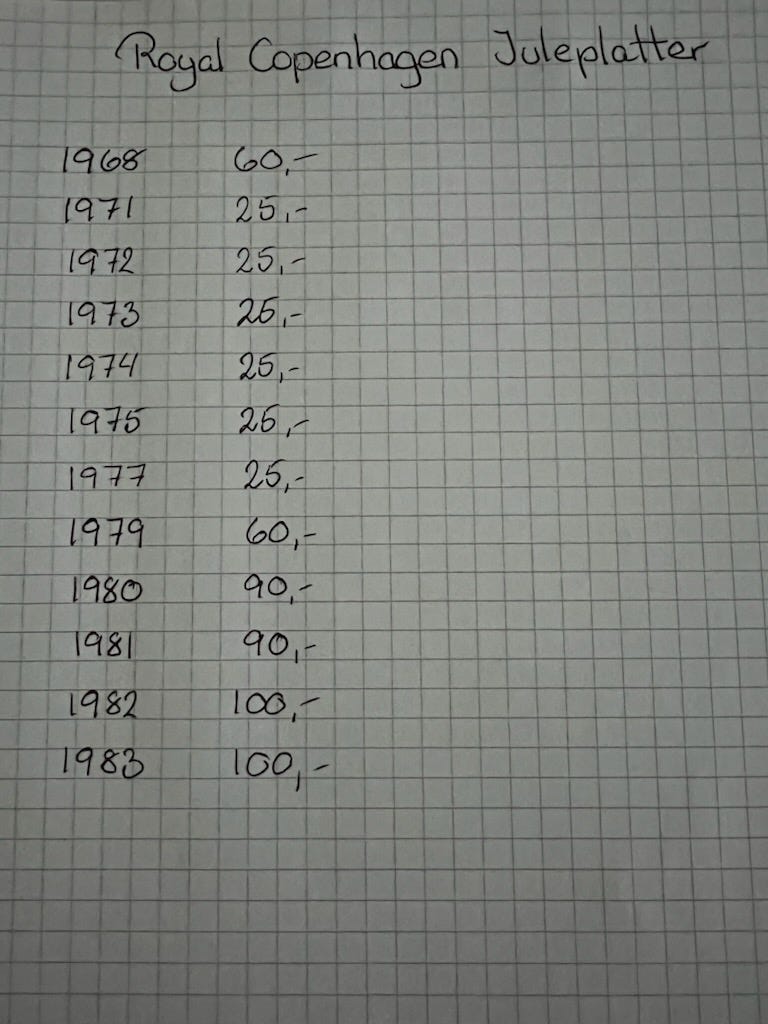 Royal Copenhagen Juleplatter
1968 60,-
1971 25,-
1972 25,-
1973 25,-
1974 25,-
1975 25,-
1977 25,-
1979 60,-
1980 90,-
1981 90,-
1982 100,-
1983 100,-